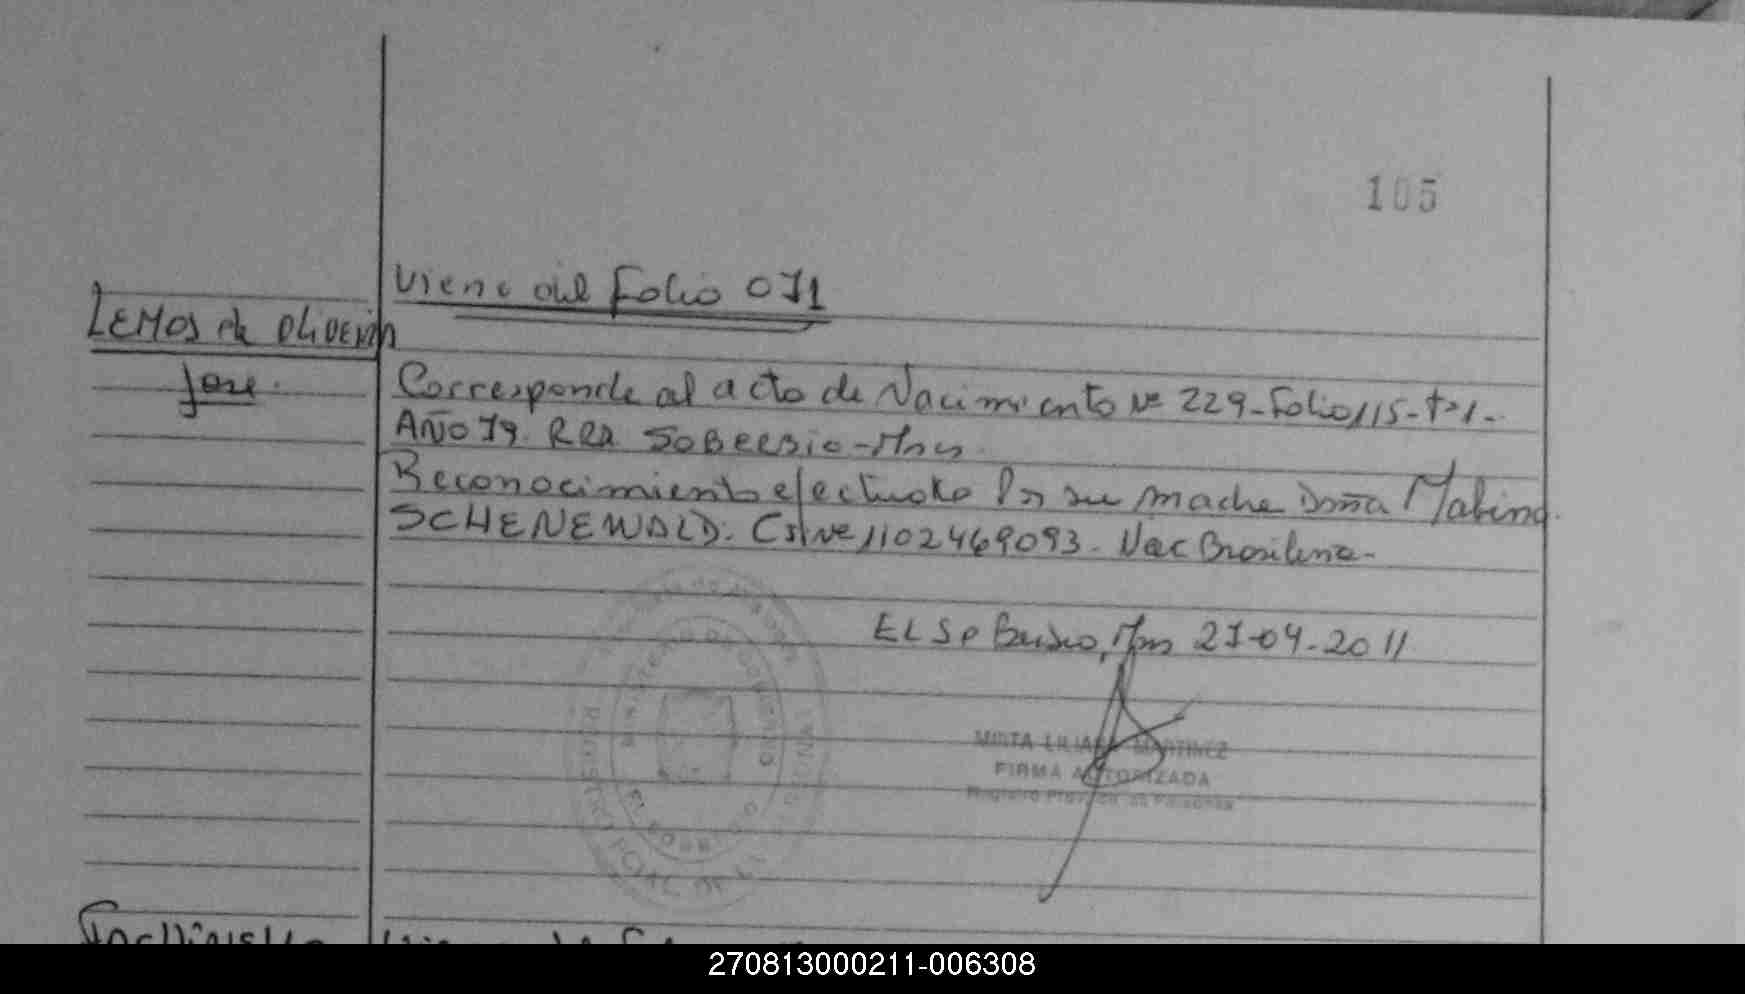 105
Viene del Folio 071
LEMOS de OLIVEIRA
Jose.
Corresponde al acto de Nacimiento Nº 229-Folio 115-tº1-
AÑO 79. SOBERBIO-Mnes
Reconocimiento efectuado Por su madre Doña Malvina
SCHENEWALD. Nº 1102469093. Nac Brasilena-
EL Soberbio, Mnes 27-04-2011
MIRTA LILIANA MARTINEZ
FIRMA AUTORIZADA
Registro Provincial de Personas
MINISTERIO DE GOBIERNO
EL SOBERBIO
270813000211-006308